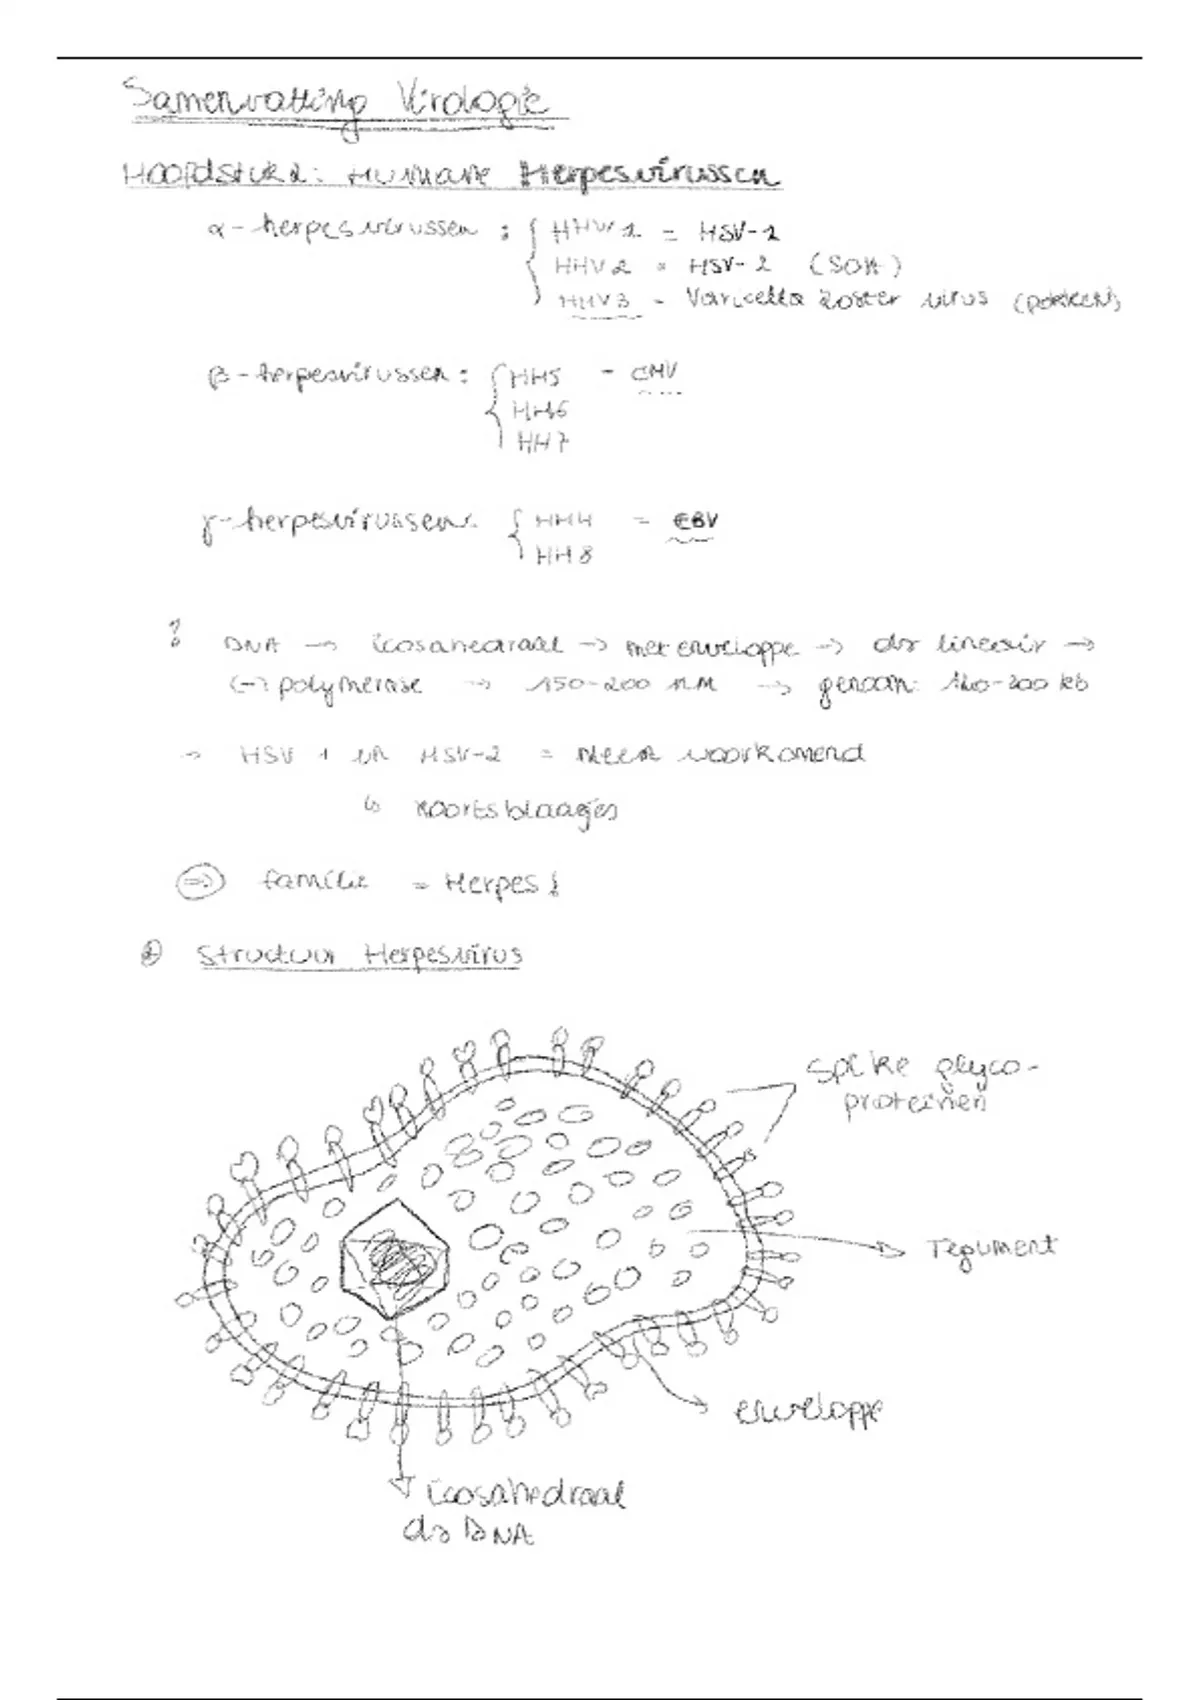 Samenvatting Virologie
Hoofdstuk 2: Humane Herpesvirussen
α-herpesvirussen : { HHV1 = HSV-1
HHV2 = HSV-2 (SOA)
HHV3 - Varicella zoster virus (pokken)
β-herpesvirussen: { HH5 - CMV
HH6
HH7
γ-herpesvirussen: { HH4 = EBV
HH8
! DNA → icosahedraal → met enveloppe → ds lineair →
(-) polymerase → 150-200 nm → genoom: 120-200 kb
→ HSV 1 en HSV-2 = meest voorkomend
↳ koortsblaasjes
⇒ familie = Herpes!
Structuur Herpesvirus
Spike glyco-
proteïnen
Tegument
enveloppe
icosahedraal
ds DNA